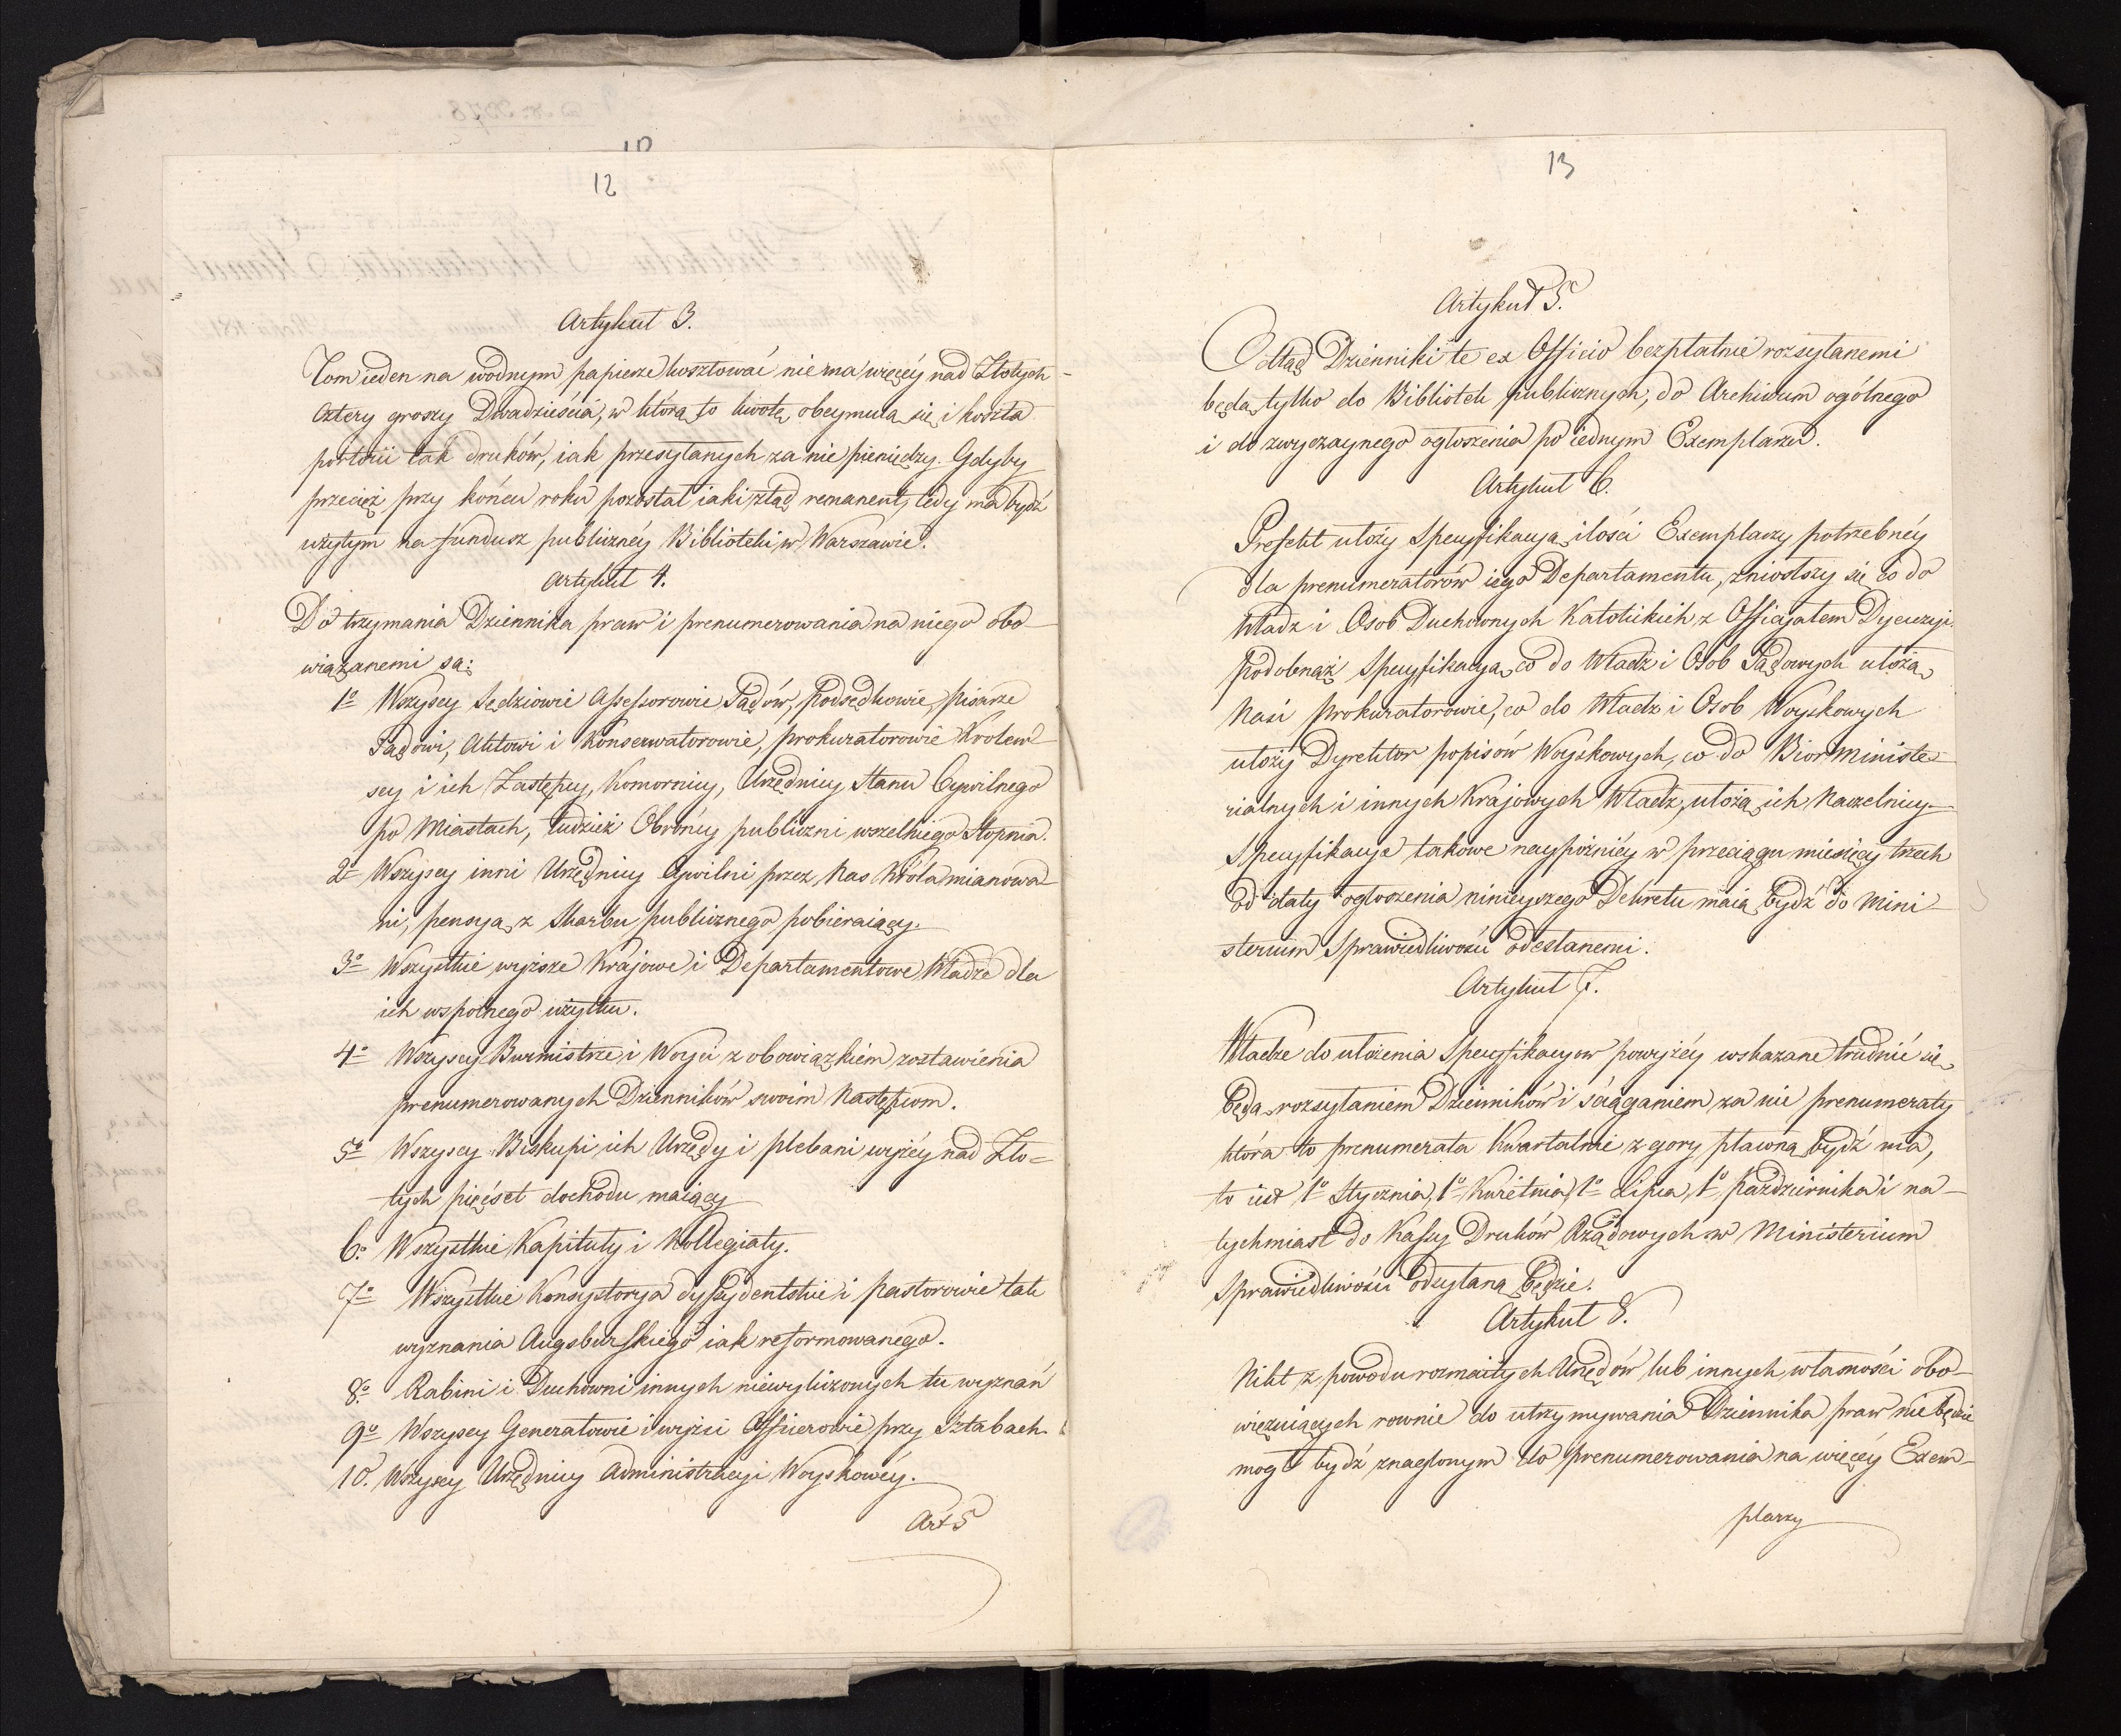 12
Artykuł 3.
Tom ieden na wodnym papierze kosztować nie ma więcéy nad Złotych
cztery groszy Dwadzieścia, w którą to kwotę obeymuią się i koszta
portorii tak druków, iak przesyłanych za nie pieniędzy. Gdyby
przecież przy końcu roku pozostał iaki ztąd remanent, tedy ma bydź
użytym na fundusz publicznéy Biblioteki w Warszawie.
Artykuł 4.
Do trzymania Dziennika praw i prenumerowania na niego obo-
wiązanemi są:
1º Wszyscy Sędziowie Assessorowie Sądów, Podsędkowie, pisarze
Sądowi, Aktowi i Konserwatorowie, prokuratorowie Królew-
scy i ich Zastępcy, Komornicy, Urzędnicy Stanu Cywilnego
po Miastach, tudzież Obrońcy publiczni wszelkiego Stopnia.
2º Wszyscy inni Urzędnicy Cywilni przez Nas Króla mianowa-
ni, pensyą z Skarbu publicznego pobieraiący.
3º Wszystkie wyższe Krajowe i Departamentowe Władze dla
ich wspolnego użytku.
4º Wszyscy Burmistrze i Woyci z obowiązkiem zostawienia
prenumerowanych Dzienników swoim Następcom.
5º Wszyscy Biskupi ich Urzędy i plebani wyżéy nad Zło=
tych pięćset dochodu maiący
6º Wszystkie Kapituły i Kollegiaty.
7º Wszystkie Konsystorya dyssydentskie i pastorowie tak
wyznania Augsburskiego iak reformowanego.
8º Rabini i Duchowni innych niewyliczonych tu wyznań
9º Wszyscy Generałowie i wyżsi Officerowie przy Sztabach.
10. Wszyscy Urzędnicy Administracyi Woyskowéy.
Art 5
13
Artykuł 5.
Odtąd Dzienniki te ex Officio bezpłatnie rozsyłanemi
będą tylko do Bibliotek publicznych, do Archivum ogólnego
i do zwyczaynego ogłoszenia po iednym Exemplarzu.
Artykuł 6.
Prefekt ułoży Specyfikacyą ilości Exemplarzy potrzebnéy
dla prenumeratorów iego Departamentu, zniosłszy się co do
Władz i Osob Duchownych Katolickich z Officyałem Dyecezyi.
Podobnąż Specyfikacyą co do Władz i Osob Sądowych ułożą
Nasi Prokuratorowie, co do Władz i Osob Woyskowych
ułoży Dyrektor popisów Woyskowych, co do Biór Ministe-
rialnych i innych Krajowych Władz, ułożą ich Naczelnicy
Specyfikacye takowe naypóźniéy w przeciągu miesięcy trzech
od daty ogłoszenia ninieyszego Dekretu maią bydź do Mini-
sterium Sprawiedliwości odesłanemi.
Artykuł 7.
Władze do ułożenia Specyfikacyow powyżéy wskazane trudnić się
będą rozsyłaniem Dzienników i ściąganiem za nie prenumeraty
która to prenumerata Kwartalnie z gory płacona bydź ma,
to iest 1º Stycznia, 1º Kwietnia, 1º Lipca, 1º Października i na-
tychmiast do Kassy Druków Rządowych w Ministerium
Sprawiedliwości odsyłaną będzie.
Artykuł 8.
Nikt z powodu rozmaitych Urzędów lub innych własności obo-
więzuiących rownie do utrzymywania Dziennika praw nie będzie
mogł bydź znaglonym do prenumerowania na więcéy Exem-
plarzy